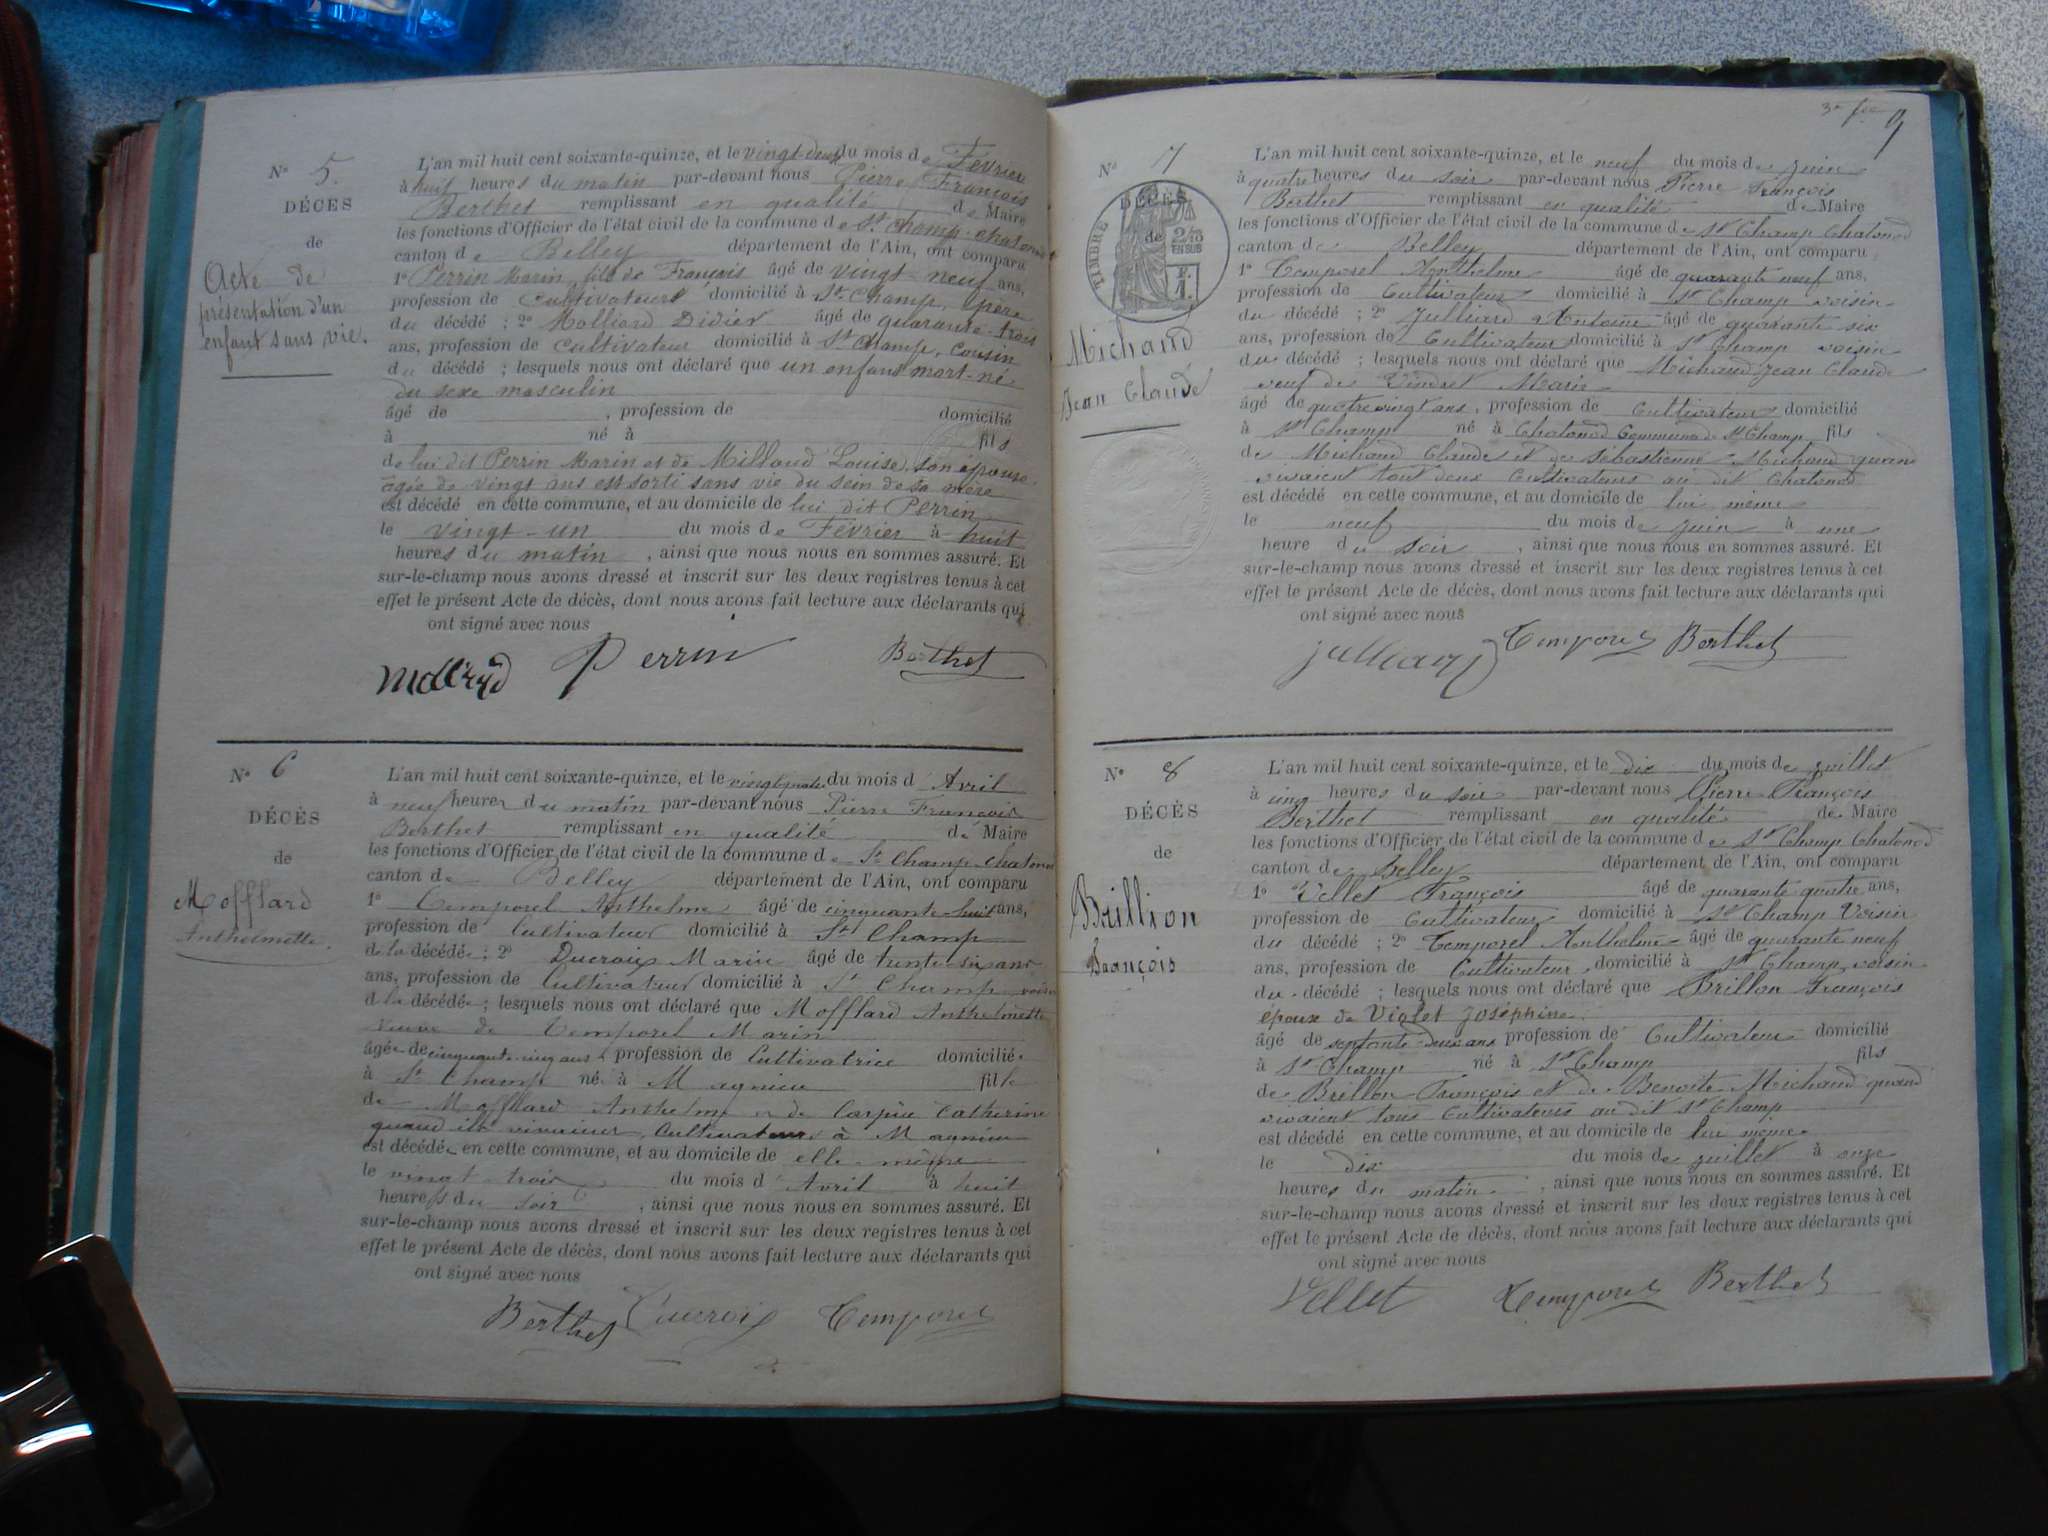 N° 5.
DÉCÈS
de
Acte de
présentation d'un
enfant sans vie.
L'an mil huit cent soixante-quinze, et le vingt-deux du mois de Février
à huit heures du matin par-devant nous Pierre François
Berthet remplissant en qualité de Maire
les fonctions d'Officier de l'état civil de la commune de St. Champ-Chatonod
canton de Belley département de l'Ain, ont comparu
1° Perrin Marin, fils de François âgé de vingt-neuf ans,
profession de Cultivateur domicilié à St. Champ, père
du décédé ; 2° Molliard Didier âgé de quarante-trois
ans, profession de cultivateur domicilié à St Champ, Cousin
du décédé ; lesquels nous ont déclaré que un enfant mort-né
du sexe masculin
âgé de , profession de domicilié
à né à fils
de lui dit Perrin Marin et de Milloud Louise, son épouse
agée de vingt ans est sorti sans vie du sein de sa mère
est décédé en cette commune, et au domicile de lui dit Perrin
le vingt-un du mois de Février à huit
heures du matin , ainsi que nous nous en sommes assuré. Et
sur-le-champ nous avons dressé et inscrit sur les deux registres tenus à cet
effet le présent Acte de décès, dont nous avons fait lecture aux déclarants qui
ont signé avec nous
Perrin Berthet
N° 6
DÉCÈS
de
Mofflard
Anthelmette.
L'an mil huit cent soixante-quinze, et le vingt quatre du mois d'Avril
à neuf heures du matin par-devant nous Pierre François
Berthet remplissant en qualité de Maire
les fonctions d'Officier de l'état civil de la commune de St Champ-Chatonod
canton de Belley département de l'Ain, ont comparu
1° Temporel Anthelme âgé de cinquante-huit ans,
profession de Cultivateur domicilié à St Champ
de la décédée ; 2° Ducroix Marin âgé de trente-six ans
ans, profession de Cultivateur domicilié à St Champ voisin
d la décédée ; lesquels nous ont déclaré que Mofflard Anthelmette
veuve de Temporel Marin
âgée de cinquante-cinq ans, profession de Cultivatrice domiciliée
à St Champ né à Magnieu fille
de Mofflard Anthelme et de Carpin Catherine
quand ils vivaient, Cultivateurs à Magnieu
est décédée en cette commune, et au domicile de elle-même
le vingt-trois du mois d'Avril à huit
heures du soir , ainsi que nous nous en sommes assuré. Et
sur-le-champ nous avons dressé et inscrit sur les deux registres tenus à cet
effet le présent Acte de décès, dont nous avons fait lecture aux déclarants qui
ont signé avec nous
Berthet Ducroix Temporel
9
N° 7
DÉCÈS
de
TIMBRE
2/10
EN SUS
F.
1.
Michaud
Jean Claude
L'an mil huit cent soixante-quinze, et le neuf du mois de juin
à quatre heures du soir par-devant nous Pierre François
Berthet remplissant en qualité de Maire
les fonctions d'Officier de l'état civil de la commune de St Champ Chatonod
canton de Belley département de l'Ain, ont comparu
1° Temporel Anthelme âgé de quarante neuf ans,
profession de Cultivateur domicilié à St Champ voisin
du décédé ; 2° Julliard Antoine âgé de quarante six
ans, profession de Cultivateur domicilié à St Champ voisin
du décédé ; lesquels nous ont déclaré que Michaud Jean Claude
veuf de Vindret Marie
âgé de quatre vingt ans, profession de Cultivateur domicilié
à St Champ né à Chatonod Commune de St Champ fils
de Michaud Claude et de Sébastienne Michaud quand
vivaient tout deux Cultivateurs au dit Chatonod
est décédé en cette commune, et au domicile de lui même
le neuf du mois de juin à une
heure du soir , ainsi que nous nous en sommes assuré. Et
sur-le-champ nous avons dressé et inscrit sur les deux registres tenus à cet
effet le présent Acte de décès, dont nous avons fait lecture aux déclarants qui
ont signé avec nous
Julliard Temporel Berthet
N° 8
DÉCÈS
de
Brillion
François
L'an mil huit cent soixante-quinze, et le dix du mois de juillet
à cinq heures du soir par-devant nous Pierre François
Berthet remplissant en qualité de Maire
les fonctions d'Officier de l'état civil de la commune de St Champ Chatonod
canton de Belley département de l'Ain, ont comparu
1° Vellet François âgé de quarante quatre ans,
profession de Cultivateur domicilié à St Champ Voisin
du décédé ; 2° Temporel Anthelme âgé de quarante neuf
ans, profession de Cultivateur domicilié à St Champ voisin
du décédé ; lesquels nous ont déclaré que Brillon François
époux de Violet Joséphine
âgé de septante-deux ans profession de Cultivateur domicilié
à St Champ né à St Champ fils
de Brillon François et de Benoite Michaud quand
vivaient tous Cultivateurs au dit St Champ
est décédé en cette commune, et au domicile de lui même
le dix du mois de juillet à onze
heures du matin , ainsi que nous nous en sommes assuré. Et
sur-le-champ nous avons dressé et inscrit sur les deux registres tenus à cet
effet le présent Acte de décès, dont nous avons fait lecture aux déclarants qui
ont signé avec nous
Vellet Temporel Berthet